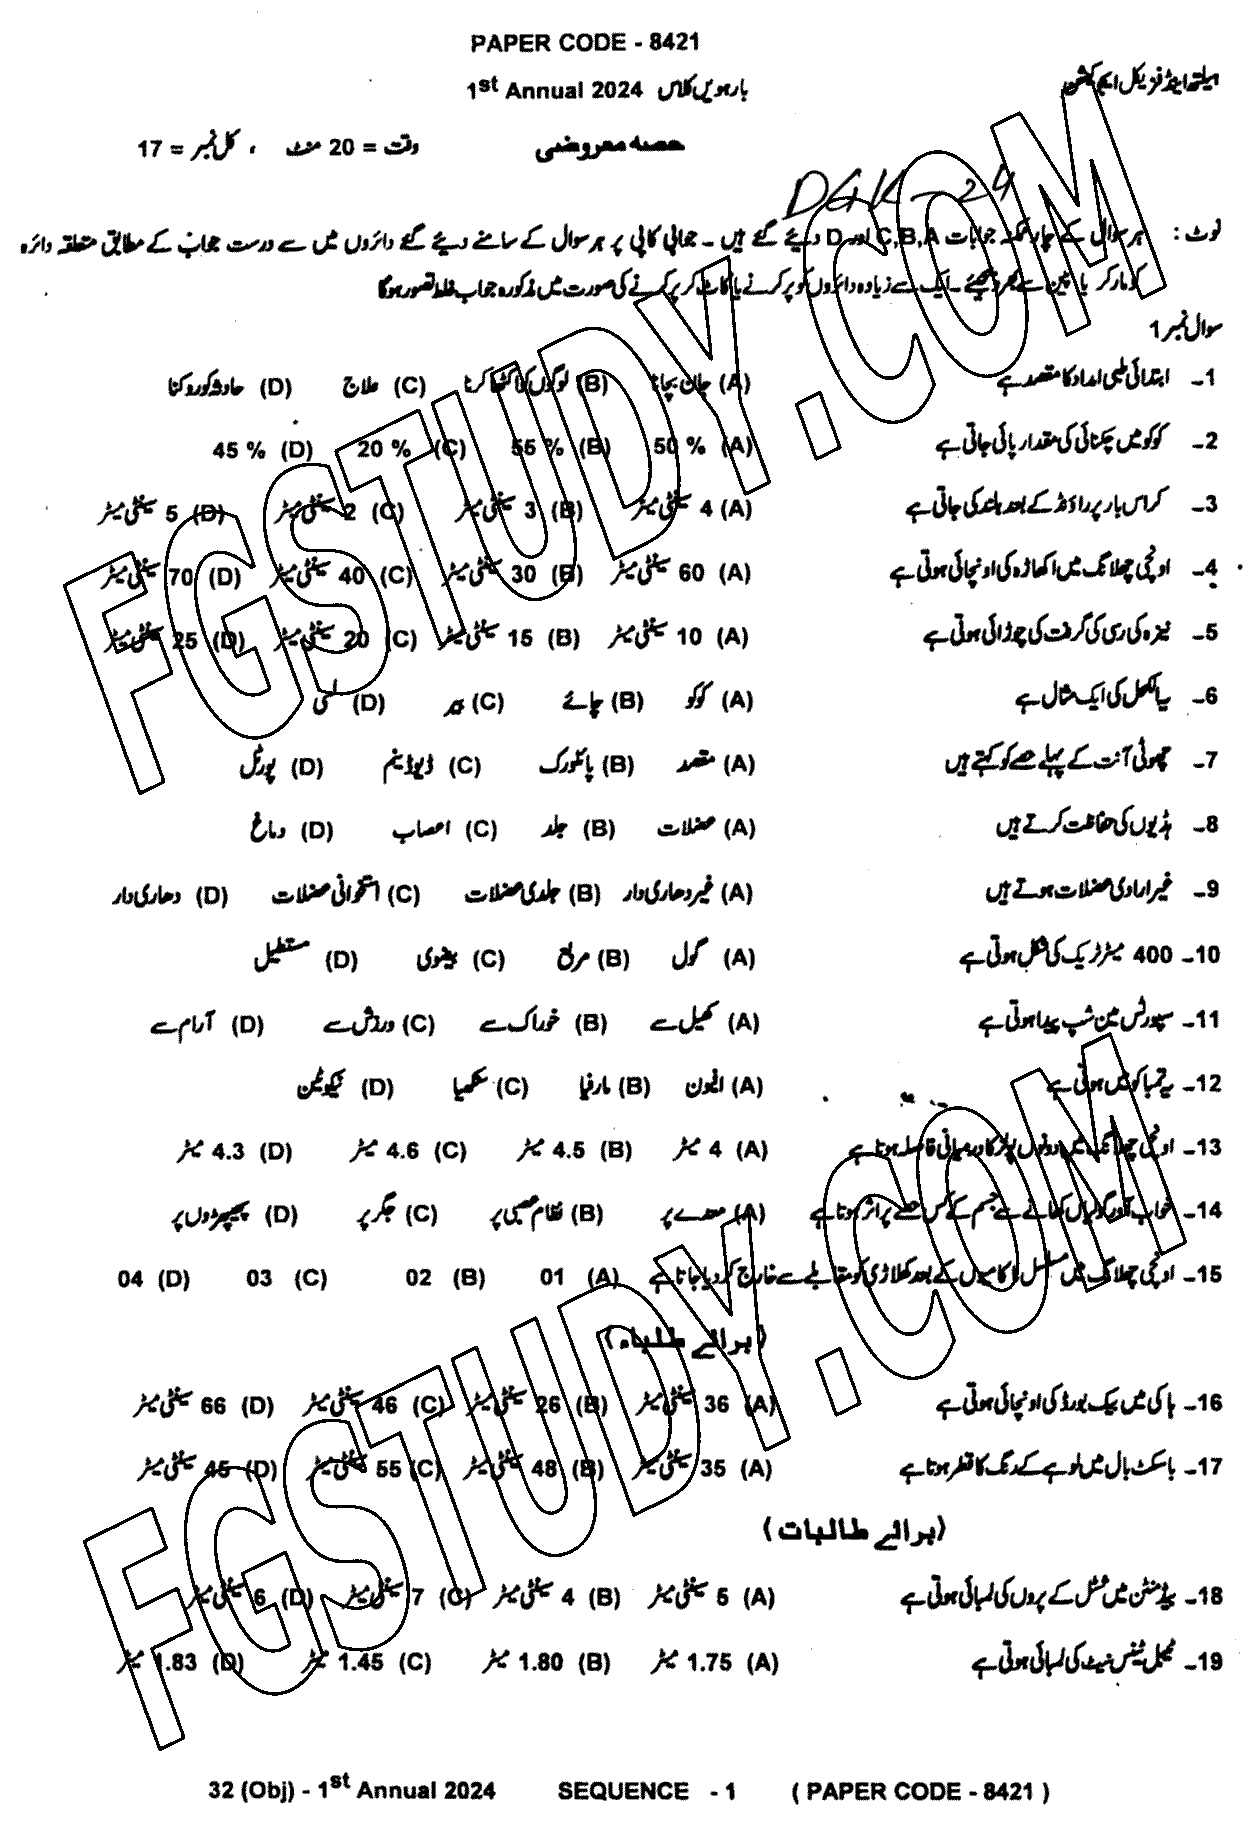 PAPER CODE - 8421
ہیلتھ اینڈ فزیکل ایجوکیشن
بارہویں کلاس 1st Annual 2024
حصہ معروضی
وقت = 20 منٹ ، کل نمبر = 17
DGK-24
نوٹ : ہر سوال کے چار ممکنہ جوابات C,B,A اور D دیئے گئے ہیں ۔ جوابی کاپی پر ہر سوال کے سامنے دیئے گئے دائروں میں سے درست جواب کے مطابق متعلقہ دائرہ
کو مارکر یا پین سے بھر دیجئے ۔ ایک سے زیادہ دائروں کو پُر کرنے یا کاٹ کر پُر کرنے کی صورت میں مذکورہ جواب غلط تصور ہوگا
سوال نمبر 1
1۔ ابتدائی طبی امداد کا مقصد ہے (A) جان بچانا (B) لوگوں کو اکٹھا کرنا (C) علاج (D) حادثہ کو روکنا
2۔ کوکو میں چکنائی کی مقدار پائی جاتی ہے (A) 50 % (B) 55 % (C) 20 % (D) 45 %
3۔ کراس بار ہر راؤنڈ کے بعد بلند کی جاتی ہے (A) 4 سینٹی میٹر (B) 3 سینٹی میٹر (C) 2 سینٹی میٹر (D) 5 سینٹی میٹر
4۔ اونچی چھلانگ میں اکھاڑہ کی اونچائی ہوتی ہے (A) 60 سینٹی میٹر (B) 30 سینٹی میٹر (C) 40 سینٹی میٹر (D) 70 سینٹی میٹر
5۔ نیزہ کی رسی کی گرفت کی چوڑائی ہوتی ہے (A) 10 سینٹی میٹر (B) 15 سینٹی میٹر (C) 20 سینٹی میٹر (D) 25 سینٹی میٹر
6۔ یہ الکحل کی ایک مثال ہے (A) کوکو (B) چائے (C) بیئر (D) لسی
7۔ چھوٹی آنت کے پہلے حصے کو کہتے ہیں (A) مقعد (B) پائلورک (C) ڈیوڈینم (D) پورٹل
8۔ ہڈیوں کی حفاظت کرتے ہیں (A) عضلات (B) جلد (C) اعصاب (D) دماغ
9۔ غیر ارادی عضلات ہوتے ہیں (A) غیر دھاری دار (B) جلدی عضلات (C) استخوانی عضلات (D) دھاری دار
10۔ 400 میٹر ٹریک کی شکل ہوتی ہے (A) گول (B) مربع (C) بیضوی (D) مستطیل
11۔ سپورٹس مین شپ پیدا ہوتی ہے (A) کھیل سے (B) خوراک سے (C) ورزش سے (D) آرام سے
12۔ یہ تمباکو میں ہوتی ہے (A) افیون (B) مارفیا (C) سنکھیا (D) نیکوٹین
13۔ اونچی چھلانگ میں دونوں پولز کا درمیانی فاصلہ ہوتا ہے (A) 4 میٹر (B) 4.5 میٹر (C) 4.6 میٹر (D) 4.3 میٹر
14۔ خواب آور گولیاں کھانے سے جسم کے کس حصے پر اثر ہوتا ہے (A) معدے پر (B) نظام عصبی پر (C) جگر پر (D) پھیپھڑوں پر
15۔ اونچی چھلانگ میں مسلسل ناکامیوں کے بعد کھلاڑی کو مقابلے سے خارج کر دیا جاتا ہے (A) 01 (B) 02 (C) 03 (D) 04
(برائے طلباء)
16۔ ہاکی میں بیک بورڈ کی اونچائی ہوتی ہے (A) 36 سینٹی میٹر (B) 26 سینٹی میٹر (C) 46 سینٹی میٹر (D) 66 سینٹی میٹر
17۔ باسکٹ بال میں لوہے کے رنگ کا قطر ہوتا ہے (A) 35 سینٹی میٹر (B) 48 سینٹی میٹر (C) 55 سینٹی میٹر (D) 45 سینٹی میٹر
(برائے طالبات)
18۔ بیڈمنٹن میں شٹل کے پروں کی لمبائی ہوتی ہے (A) 5 سینٹی میٹر (B) 4 سینٹی میٹر (C) 7 سینٹی میٹر (D) 6 سینٹی میٹر
19۔ ٹیبل ٹینس نیٹ کی لمبائی ہوتی ہے (A) 1.75 میٹر (B) 1.80 میٹر (C) 1.45 میٹر (D) 1.83 میٹر
32 (Obj) - 1st Annual 2024 SEQUENCE - 1 ( PAPER CODE - 8421 )
FGSTUDY.COM
FGSTUDY.COM